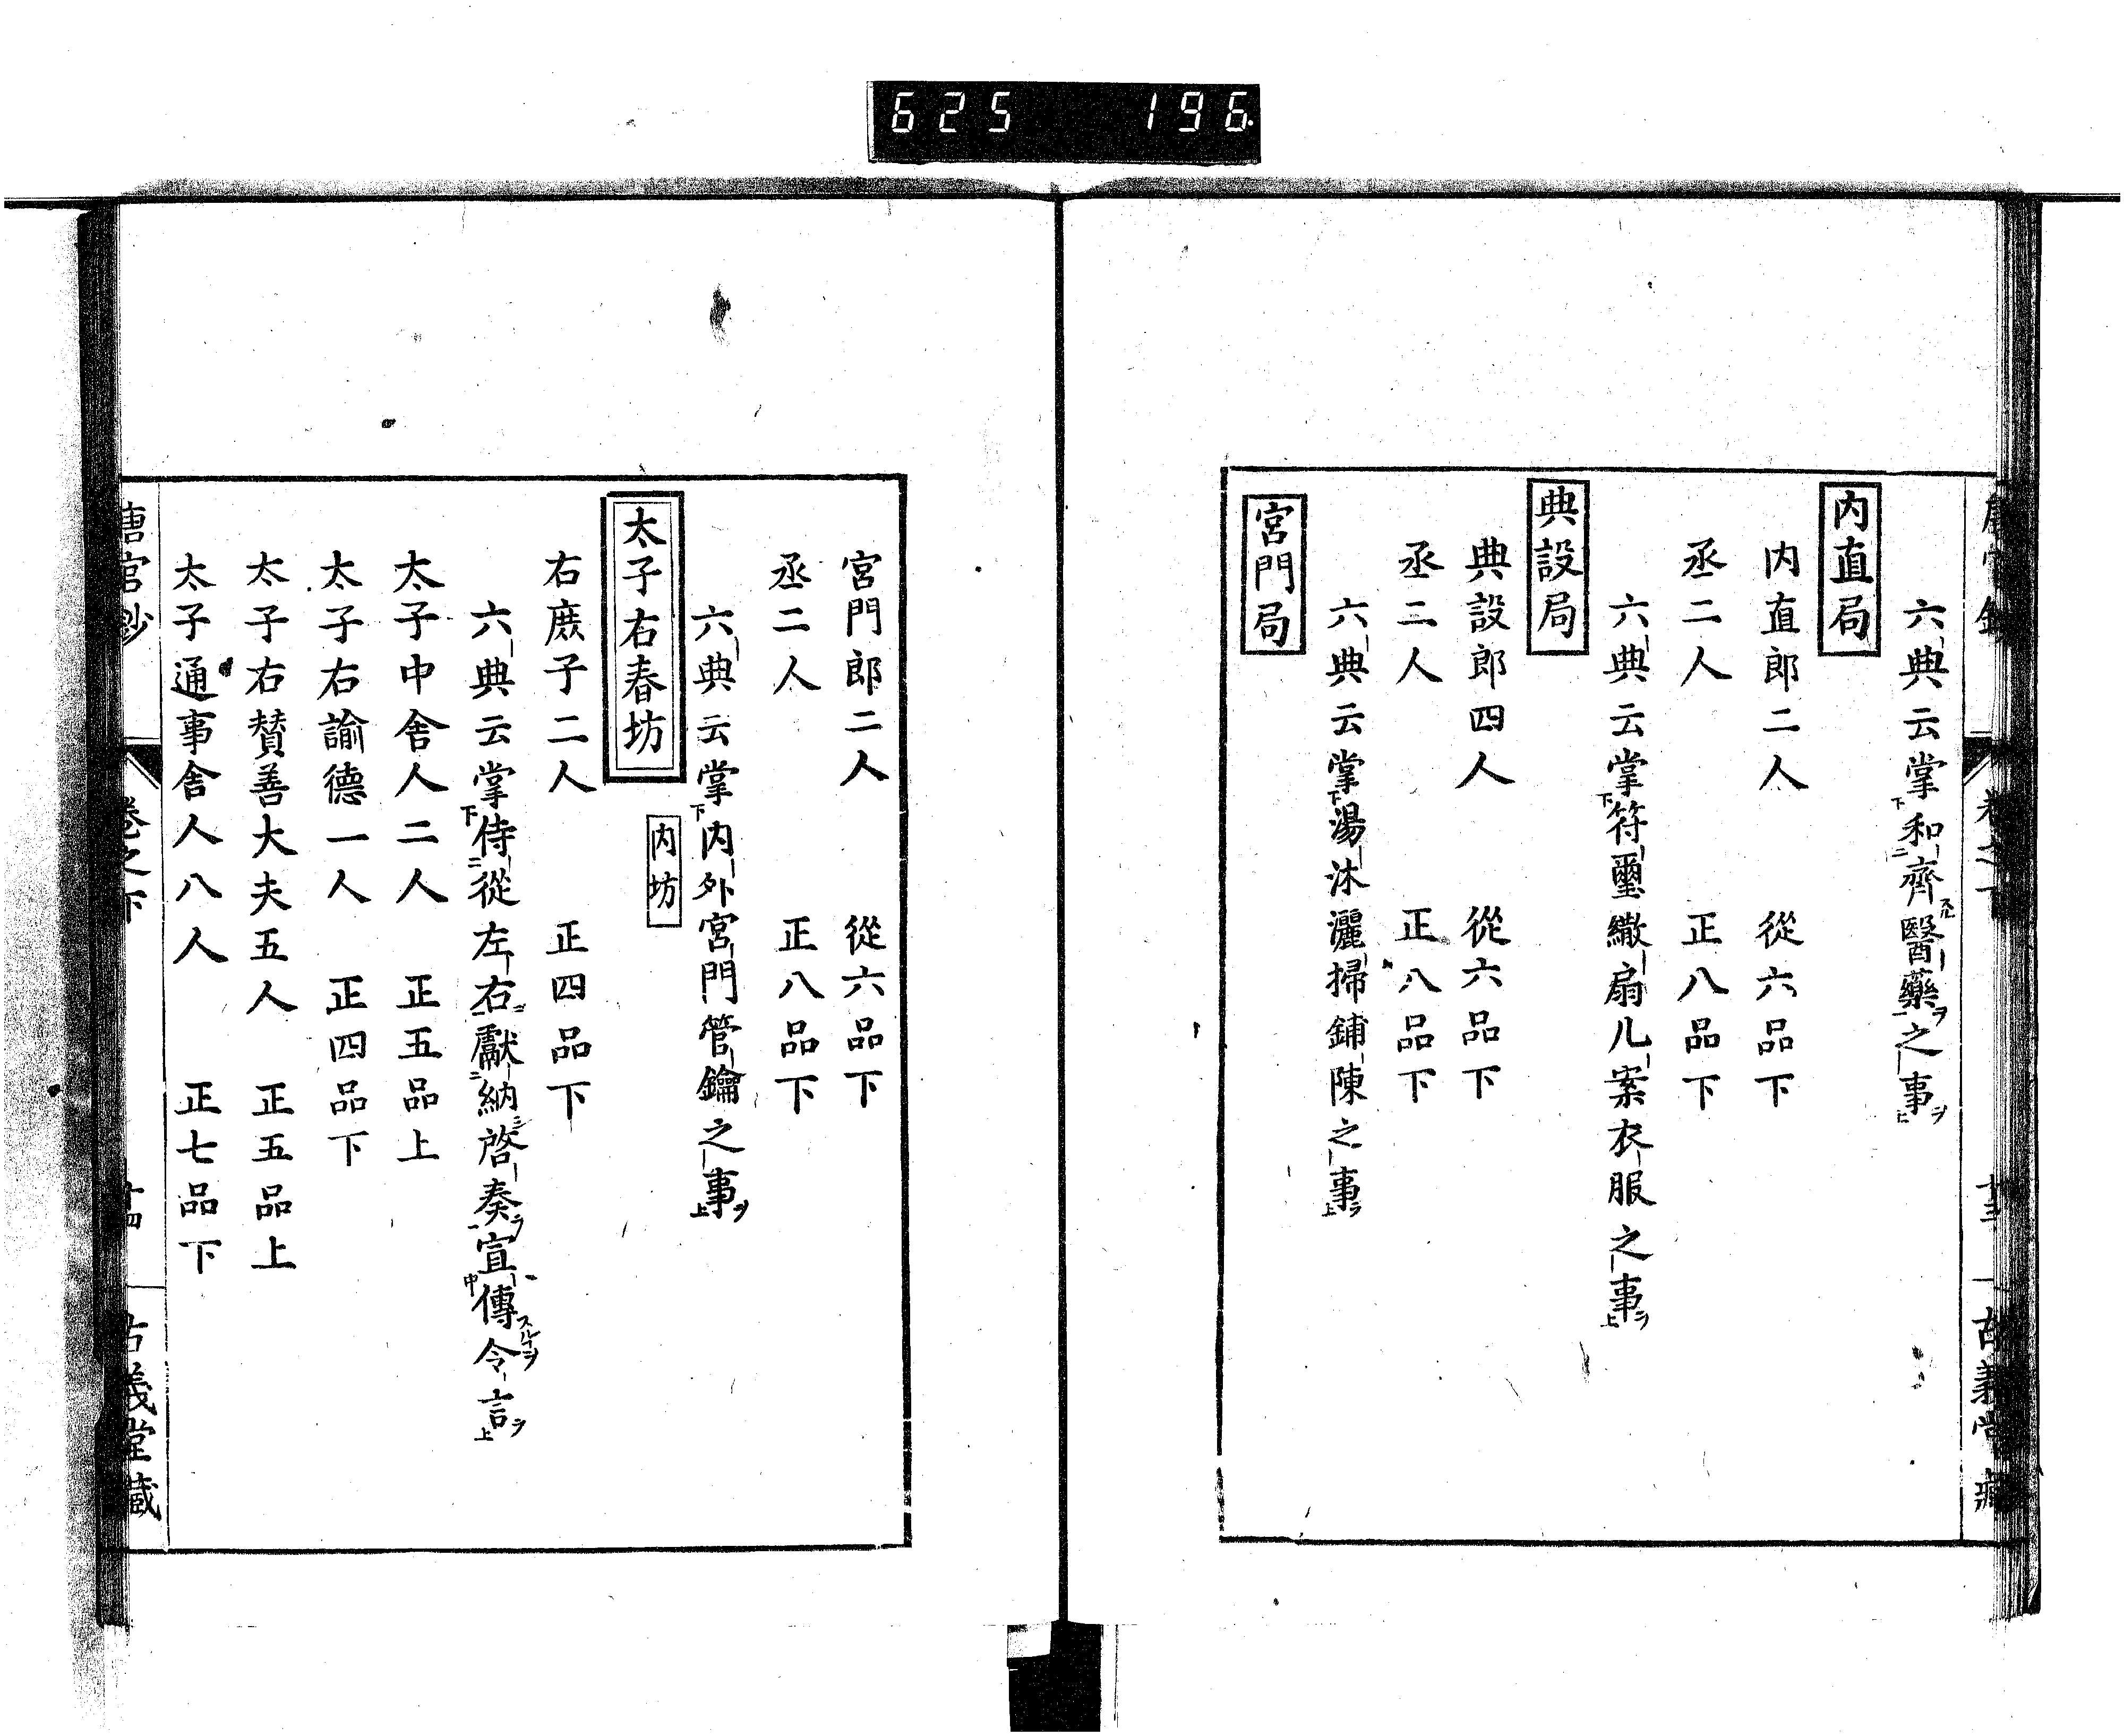 625 196
六典云掌和齊醫藥之事
内直局
内直郎二人 從六品下
丞二人 正八品下
六典云掌符璽繖扇几案衣服之事
典設局
典設郎四人 從六品下
丞二人 正八品下
六典云掌湯沐灑掃鋪陳之事
宮門局
宮門郎二人 從六品下
丞二人 正八品下
六典云掌内外宮門管鑰之事
太子右春坊 内坊
右庶子二人 正四品下
六典云掌侍從左右獻納啓奏宣傳令言
太子中舍人二人 正五品上
太子右諭德一人 正四品下
太子右賛善大夫五人 正五品上
太子通事舍人八人 正七品下
唐官鈔 卷之下 十四 古義堂藏